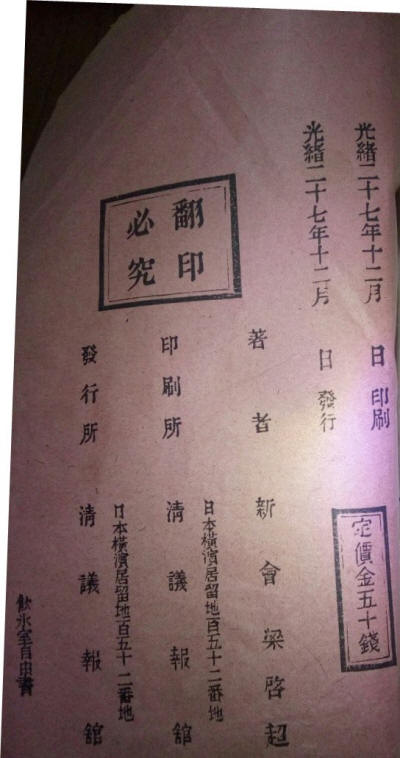 光緒二十七年十二月 日印刷
光緒二十七年十二月 日發行
定價金五十錢
翻印
必究
著者 新會梁啓超
日本橫濱居留地百五十二番地
印刷所 清議報館
日本橫濱居留地百五十二番地
發行所 清議報館
飲氷室自由書